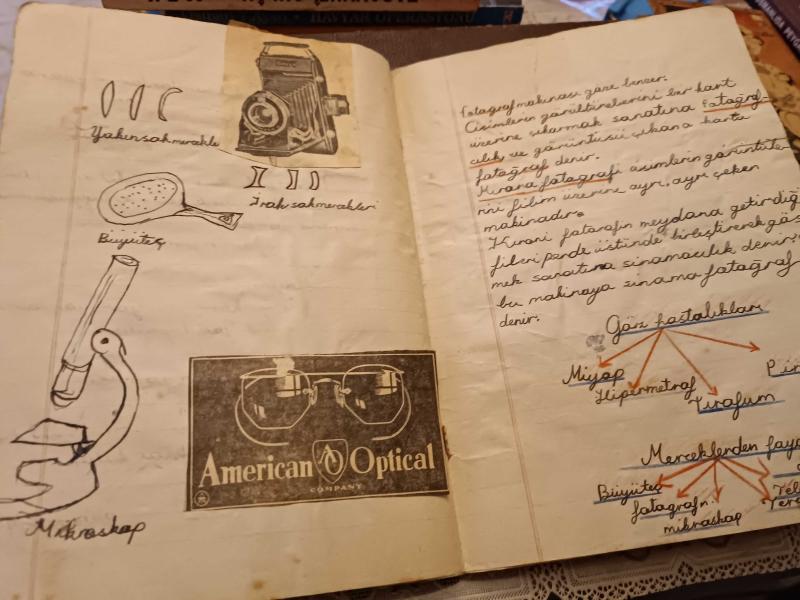 HAVYAR OPERASYONU
Yakınsakmerakle
Irak sakmerakleri
Büyüteç
American AO Optical
COMPANY
Mikroskop
Fotograf makinası göze benzer.
Cisimlerin görültülerini bir kart
üzerine çıkarmak sanatına fotağraf-
cılık ve görüntüsü çıkana karta
fotağraf denir.
fotağrafı cisimlerin görüntüle-
rini filim üzerine ayrı, ayrı çeken
makinadır.
fatarafın meydana getirdiğ
filleri perde üstünde birleştirerek gös
mek sanatına sinamacılık denir.
bu makinaya sinama fotağraf
denir.
Göz hastalıkları
Miyop
Hipermetraf
Tirafum
Merceklerden fayd
Büyüteç
fotagrafı
mikroskop